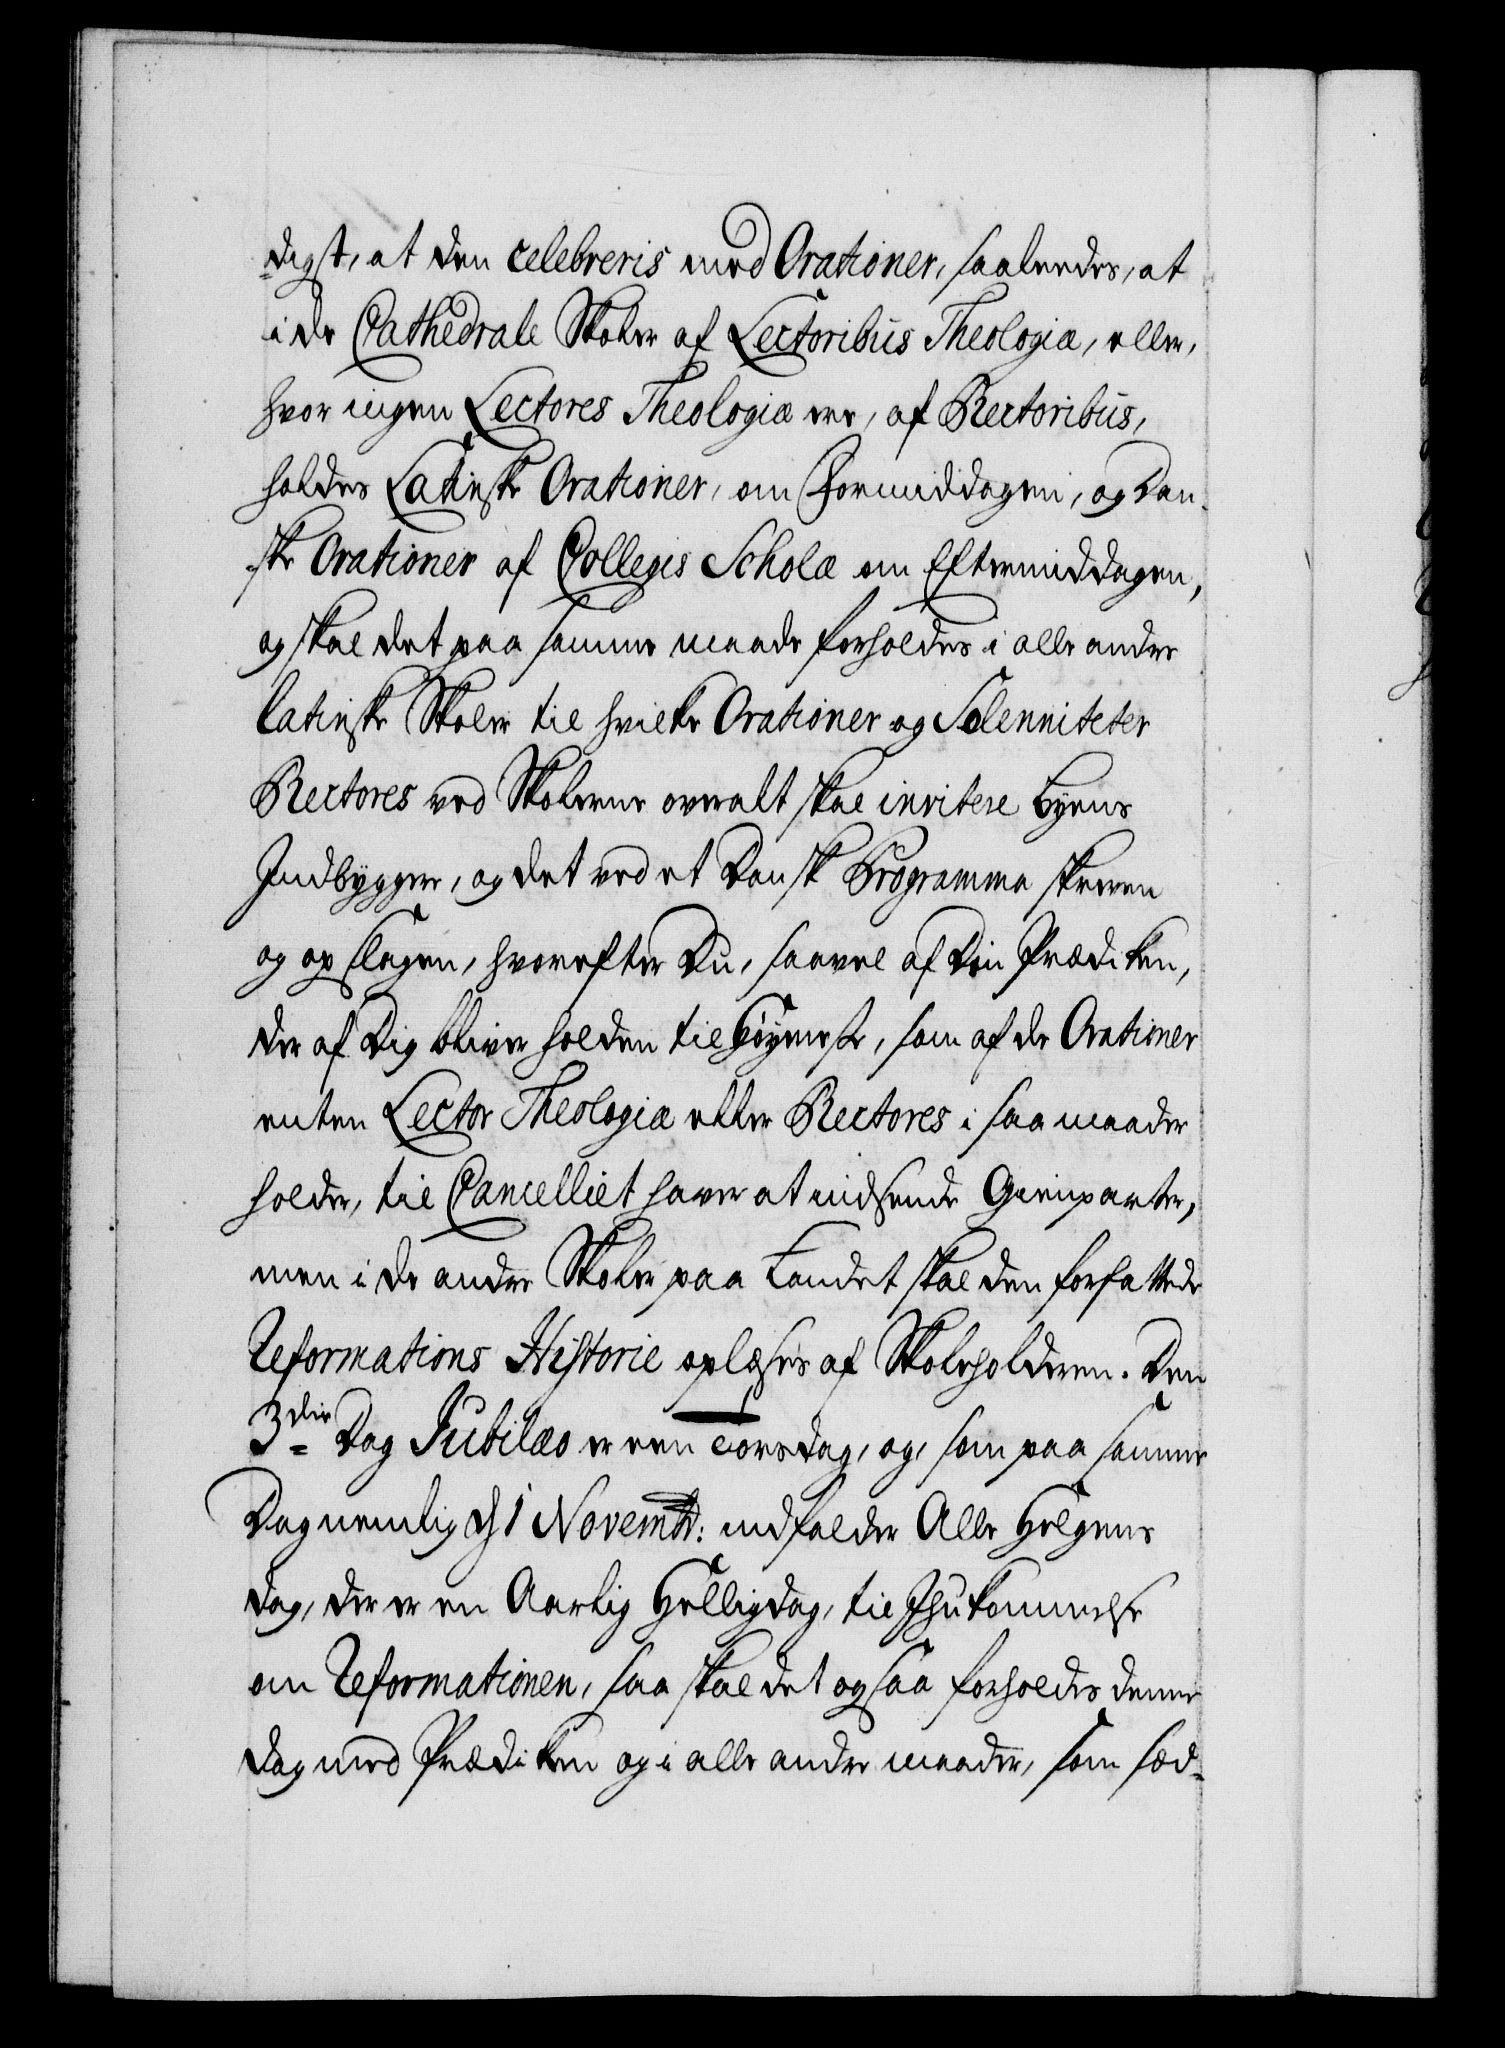 digst, at den celebreris med Orationer, saaleedes, at
i de Cathedrale Skoler af Lectoribus Theologiæ, eller,
hvor ingen Lectores Theologiæ ere, af Rectoribus,
holdes Latinske Orationer, om Formiddagen, og Dan-
ske Orationer af Collegis Scholæ om Eftermiddagen,
og skal det paa samme maade forholdes i alle andre
latinske Skoler til hvilke Orationer og Solenniteter
Rectores ved Skolerne overalt skal invitere Byens
Indbyggere, og det ved et Dansk Programma skreven
og opslagen, hvorefter Du, saavel af Din Prædiken,
der af Dig bliver holden til Höymesse, som af de Orationer
enten Lector Theologiæ eller Rectores i saa maader
holder, til Cancelliet haver at indsende Gienparter,
men i de andre Skoler paa Landet skal den forfattede
Reformations Historie oplæses af Skoleholderen. Den
3die Dag Jubilæo er een Torsdag, og, som paa samme
Dag nemlig d. 1 Novembr: indfalder Alle Helgens
dag, der er en Aarlig Helligdag, til Ihukommelse
om Reformationen, saa skal det ogsaa forholdes denne
dag med Prædiken og i alle andre maader, som sæd-